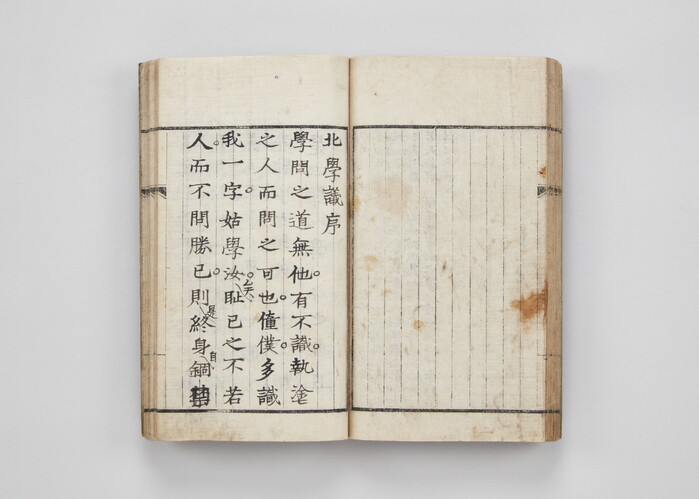 北學議序
學問之道無他。有不識。執塗
之人而問之可也。僮僕。多識
我一字。姑學汝。矣恥已之不若
人。而不問勝已。則是終身自錮